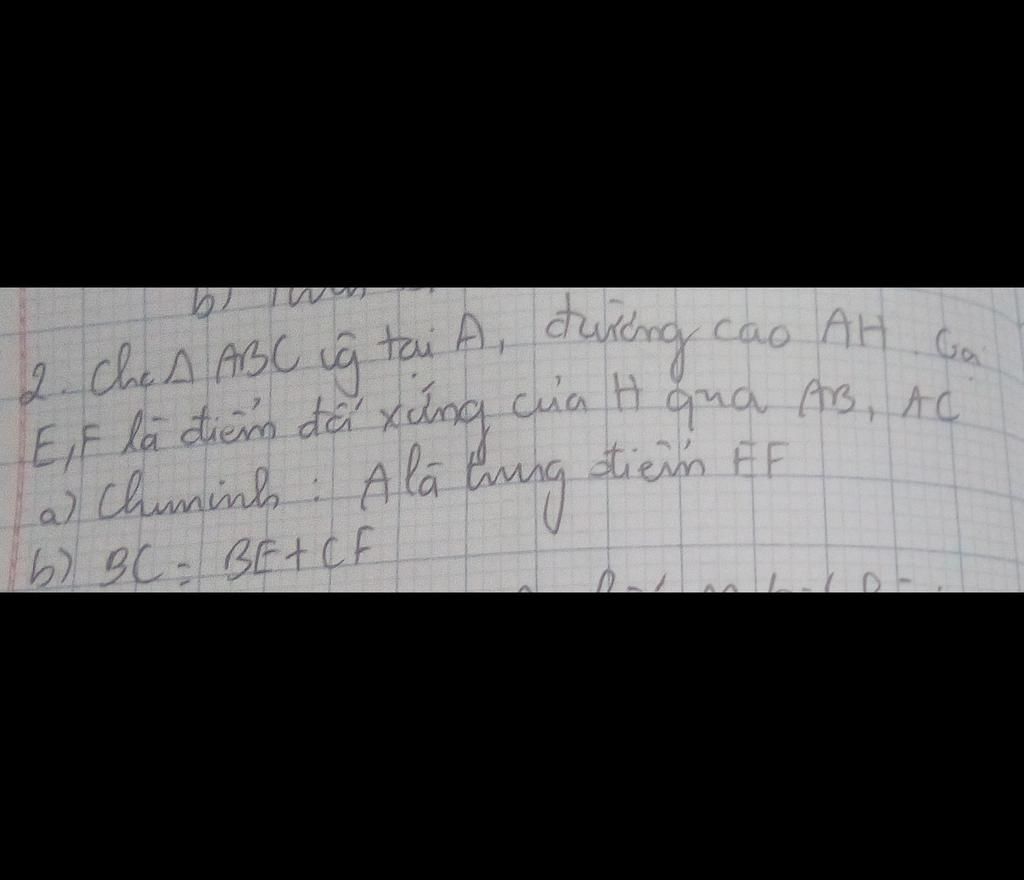 2. Cho Δ ABC vg tại A, đường cao AH. Gọi
E, F là điểm đối xứng của H qua AB, AC
a) Chưminh : A là trung điểm EF
b) BC = BE + CF